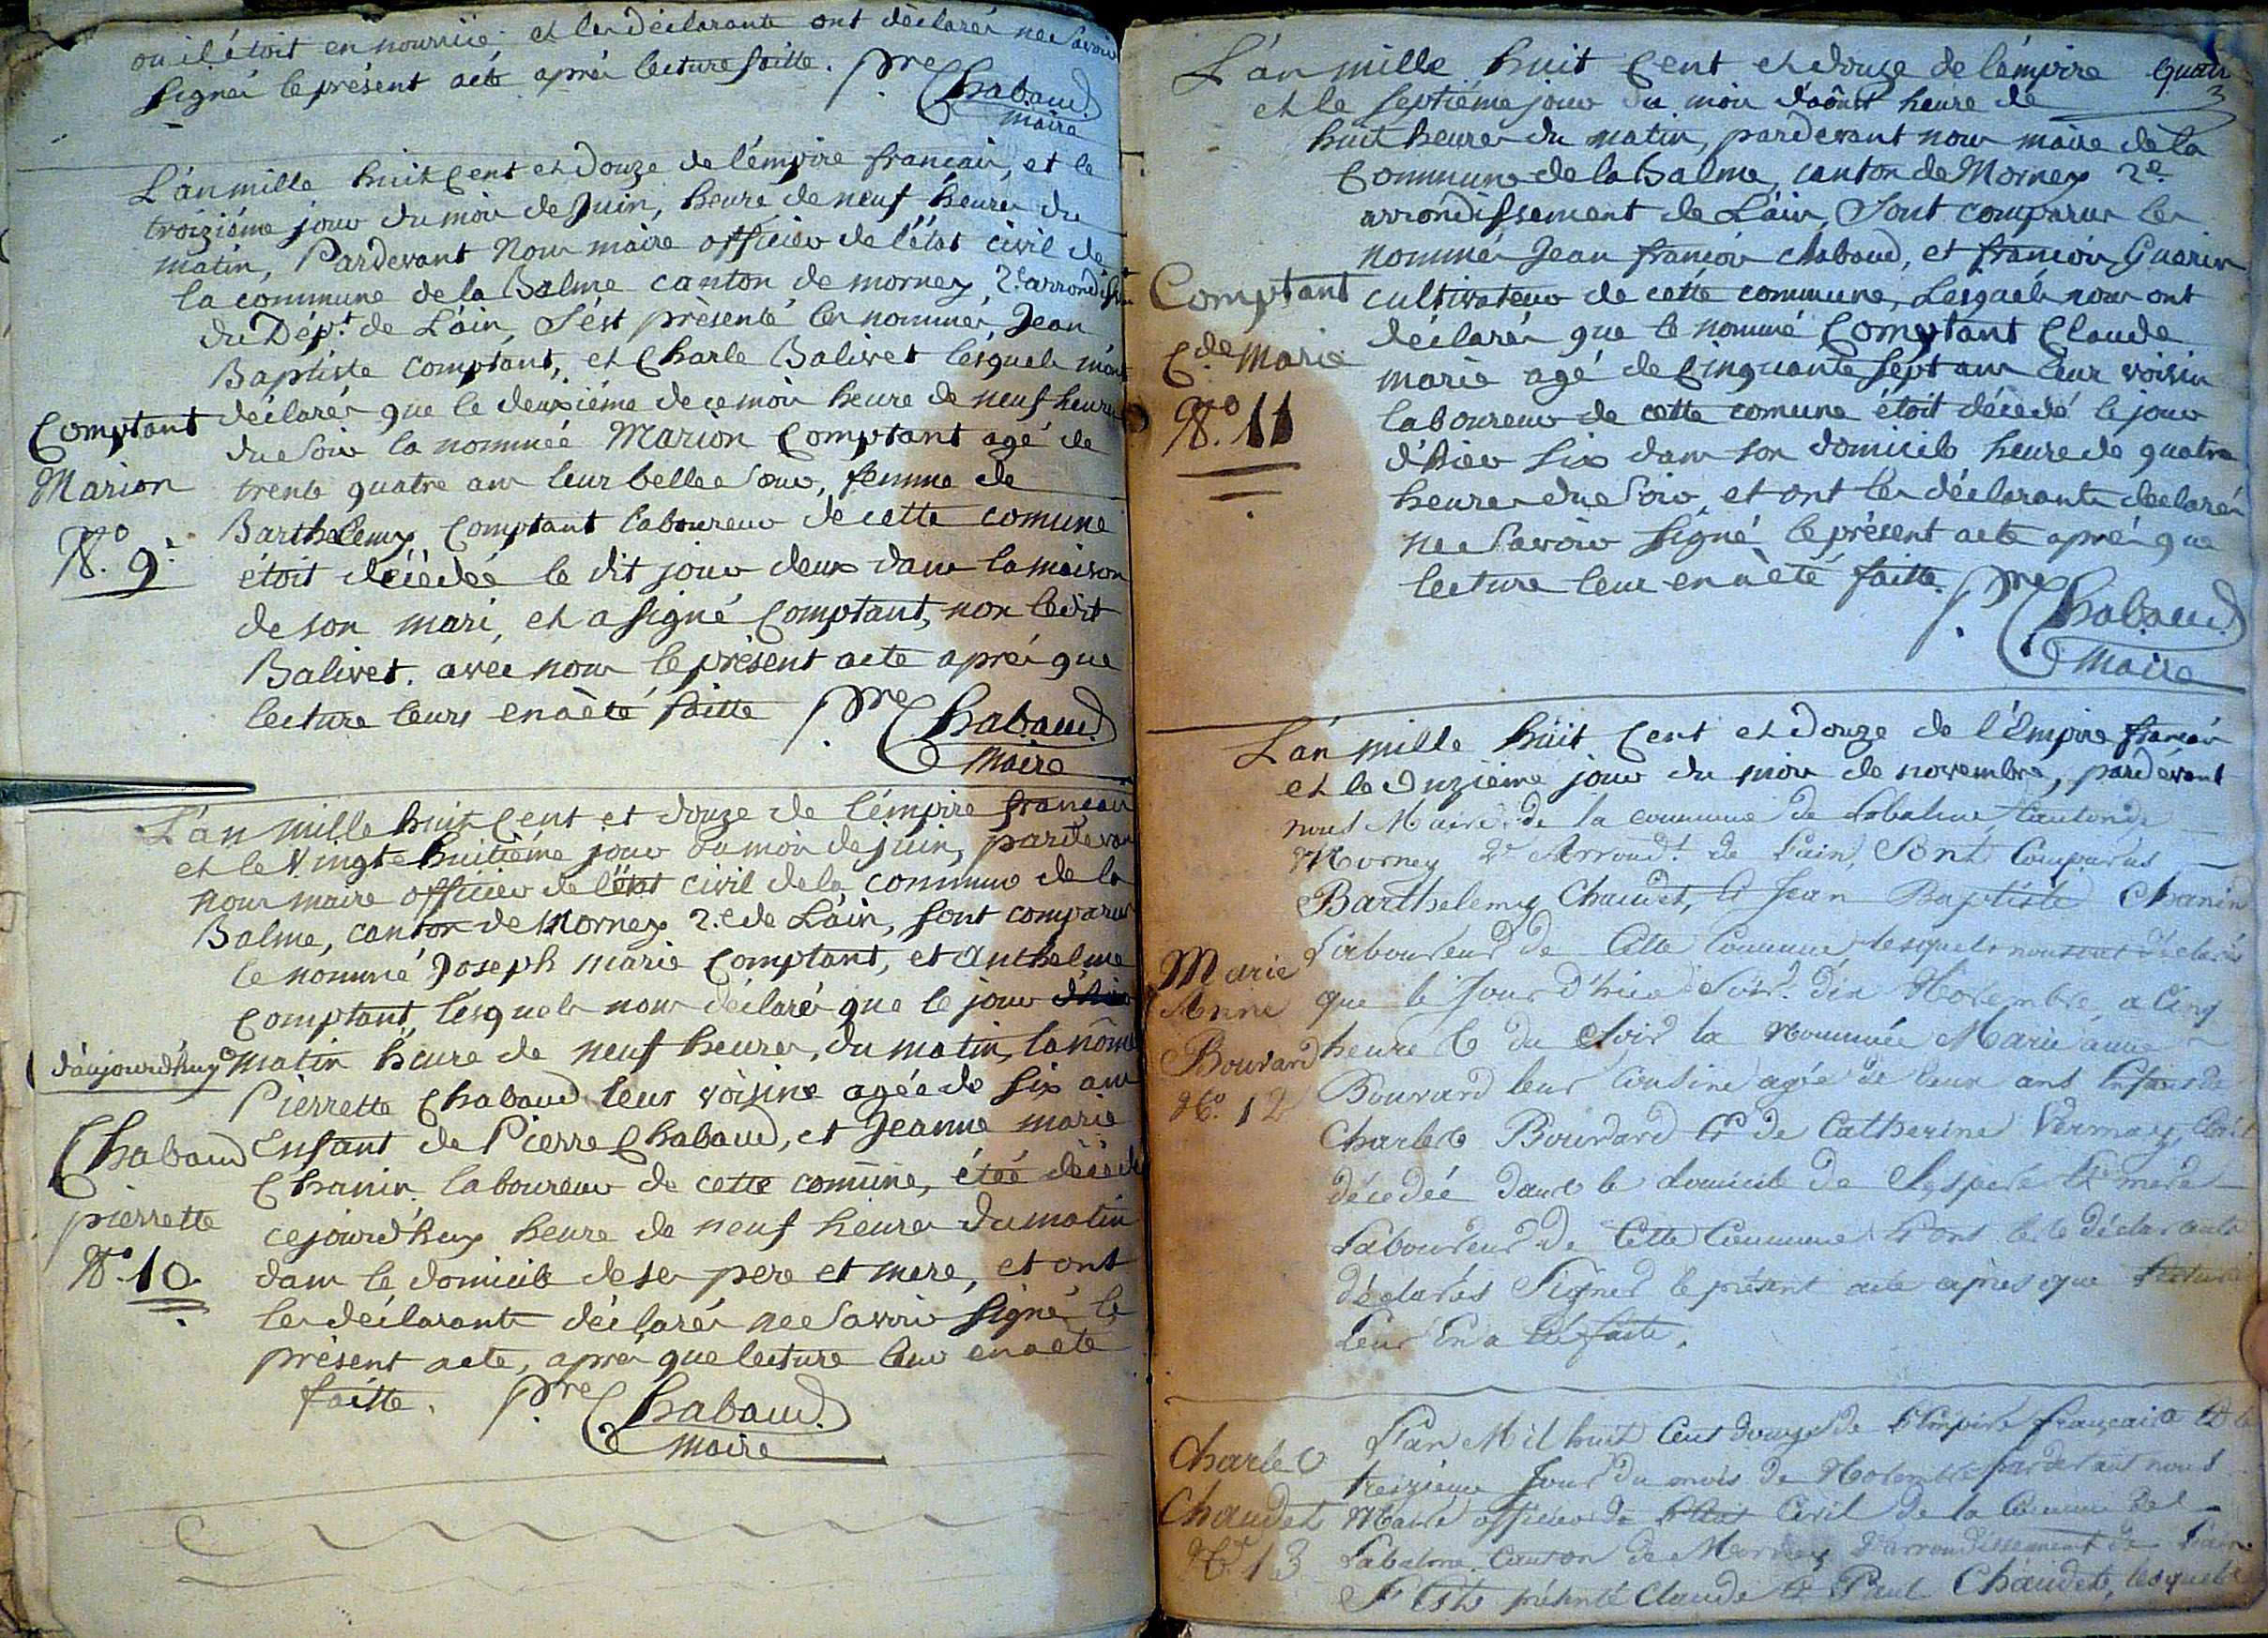 ou il étoit en nourrice, et les déclarants ont déclarés ne Savoir
signer le présent acte après lecture faitte. Pre Chabaud
maire
L'an mille huit Cent et Douze de l'émpire francais, et le
troizième jour du mois de Juin, heure de neuf heures du
matin, Pardevant Nous maire officier de l'état civil de
la commune de la Balme canton de mornex, 2e arrondissem
du Dépt de L'ain, S'est présenté les nommés, Jean
Baptiste Comptant, et Charle Balivet lésquels m'ont
déclarés que le deuxième de ce mois heure de neuf heures
Comptant
Marion
No 9.
du Soir la nommée Marion Comptant agé de
trente quatre ans leur belle Soeur, femme de
Barthelemy Comptant laboureur de cette comune
étoit décèdée le dit jour deux dans la maison
de son mari, et a signé Comptant, non ledit
Balivet. avec nous le présent acte après que
lecture leurs en a èté faitte Pre Chabaud
Maire
L'an mille huit Cent et douze de l'émpire francais
et le Vingte huitième jour du mois de juin, pardevant
nous maire officier de l'état civil de la commune de la
Balme, canton de Mornex 2.e de L'ain, sont comparus
le nommé Joseph marie Comptant, et Anthelme
Comptant, lésquels nous déclaré que le jour d'hier
d'aujourd'huy
matin heure de neuf heures, du matin, la nômé
Pierrette Chabaud leur voisine agée de six ans
Chabaud
pierrette
No 10
Enfant de Pierre Chabaud, et Jeanne marie
Chanin laboureur de cette comune, étoé décédé
cejourd'huy heure de neuf heures du matin
dans le domicile de ses pere et mere, et ont
les déclarants déclarés ne Savoir signé le
présent acte, après que lecture leur en a èté
faitte. Pre Chabaud
Maire
L'an mille huit Cent et douze de l'émpire
et le septième jour du mois d'aôust heure de
huit heures du matin, pardevant nous maire de la
Commune de la Balme, canton de Mornex 2e
arrondissement de L'ain, Sont comparus les
nommés Jean francois chabaud, et francois Guarin
Comptant
Cde Marie
No 11
cultivateur de cette commune, Lesquels nous ont
déclarés que le nommé Comptant Claude
marie agé de Cinquante sept ans leur voisin
laboureur de cette comune étoit décedé le jour
d'hier six dans son domicile heure de quatre
heures du Soir, et ont les déclarants declarés
ne Savoir signé le présent acte après que
lecture leur en a èté faitte. Pre Chabaud
Maire
L'an mille huit Cent et Douze de l'Empire francais
et le Onzième jour du mois de novembre, pardevant
nous Maire de la commune de Labalme Canton de
Mornex 2e Arrondt de Lain, Sont Comparus
Barthelemy Chaudet, et Jean Baptiste Chanin
Marie
Anne
Bouvard
No 12
Laboureurs de Cette Commune, lesquels nous ont déclarés
que le Jour d'hier Soir dix Novembre, a Cinq
heures du Soir la Nommée Marie anne
Bouvard leur Cousine agée de deux ans Enfans de
Charles Bouvard Et de Catherine Vermay, Etoit
décédée dans le domicile de Ses père Et mère
Laboureurs de Cette Commune Et ont les déclarants
déclarés Signer le présent acte apres que lecture
Leur En a Eté faite.
Charles
Chaudet
No 13
L'an Mil huit Cent douze de l'Empire français Et le
treizieme Jour du mois de Novembre pardevant nous
Maire officier de l'Etat Civil de la Commune de
Labalme Canton de Mornex 2 arrondissement de Lain
S'Est présenté Claude Et Paul Chaudet, lesquels